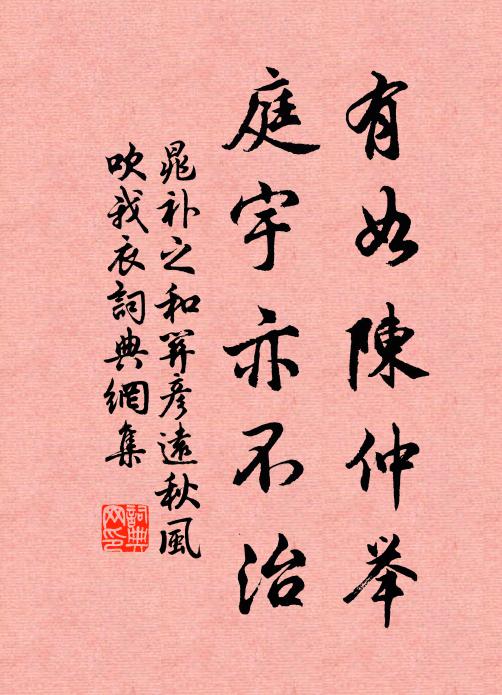 有如陳仲举
庭宇亦不治
晁补之和關彦遠秋風
吹我衣詞典網集
詞典网印